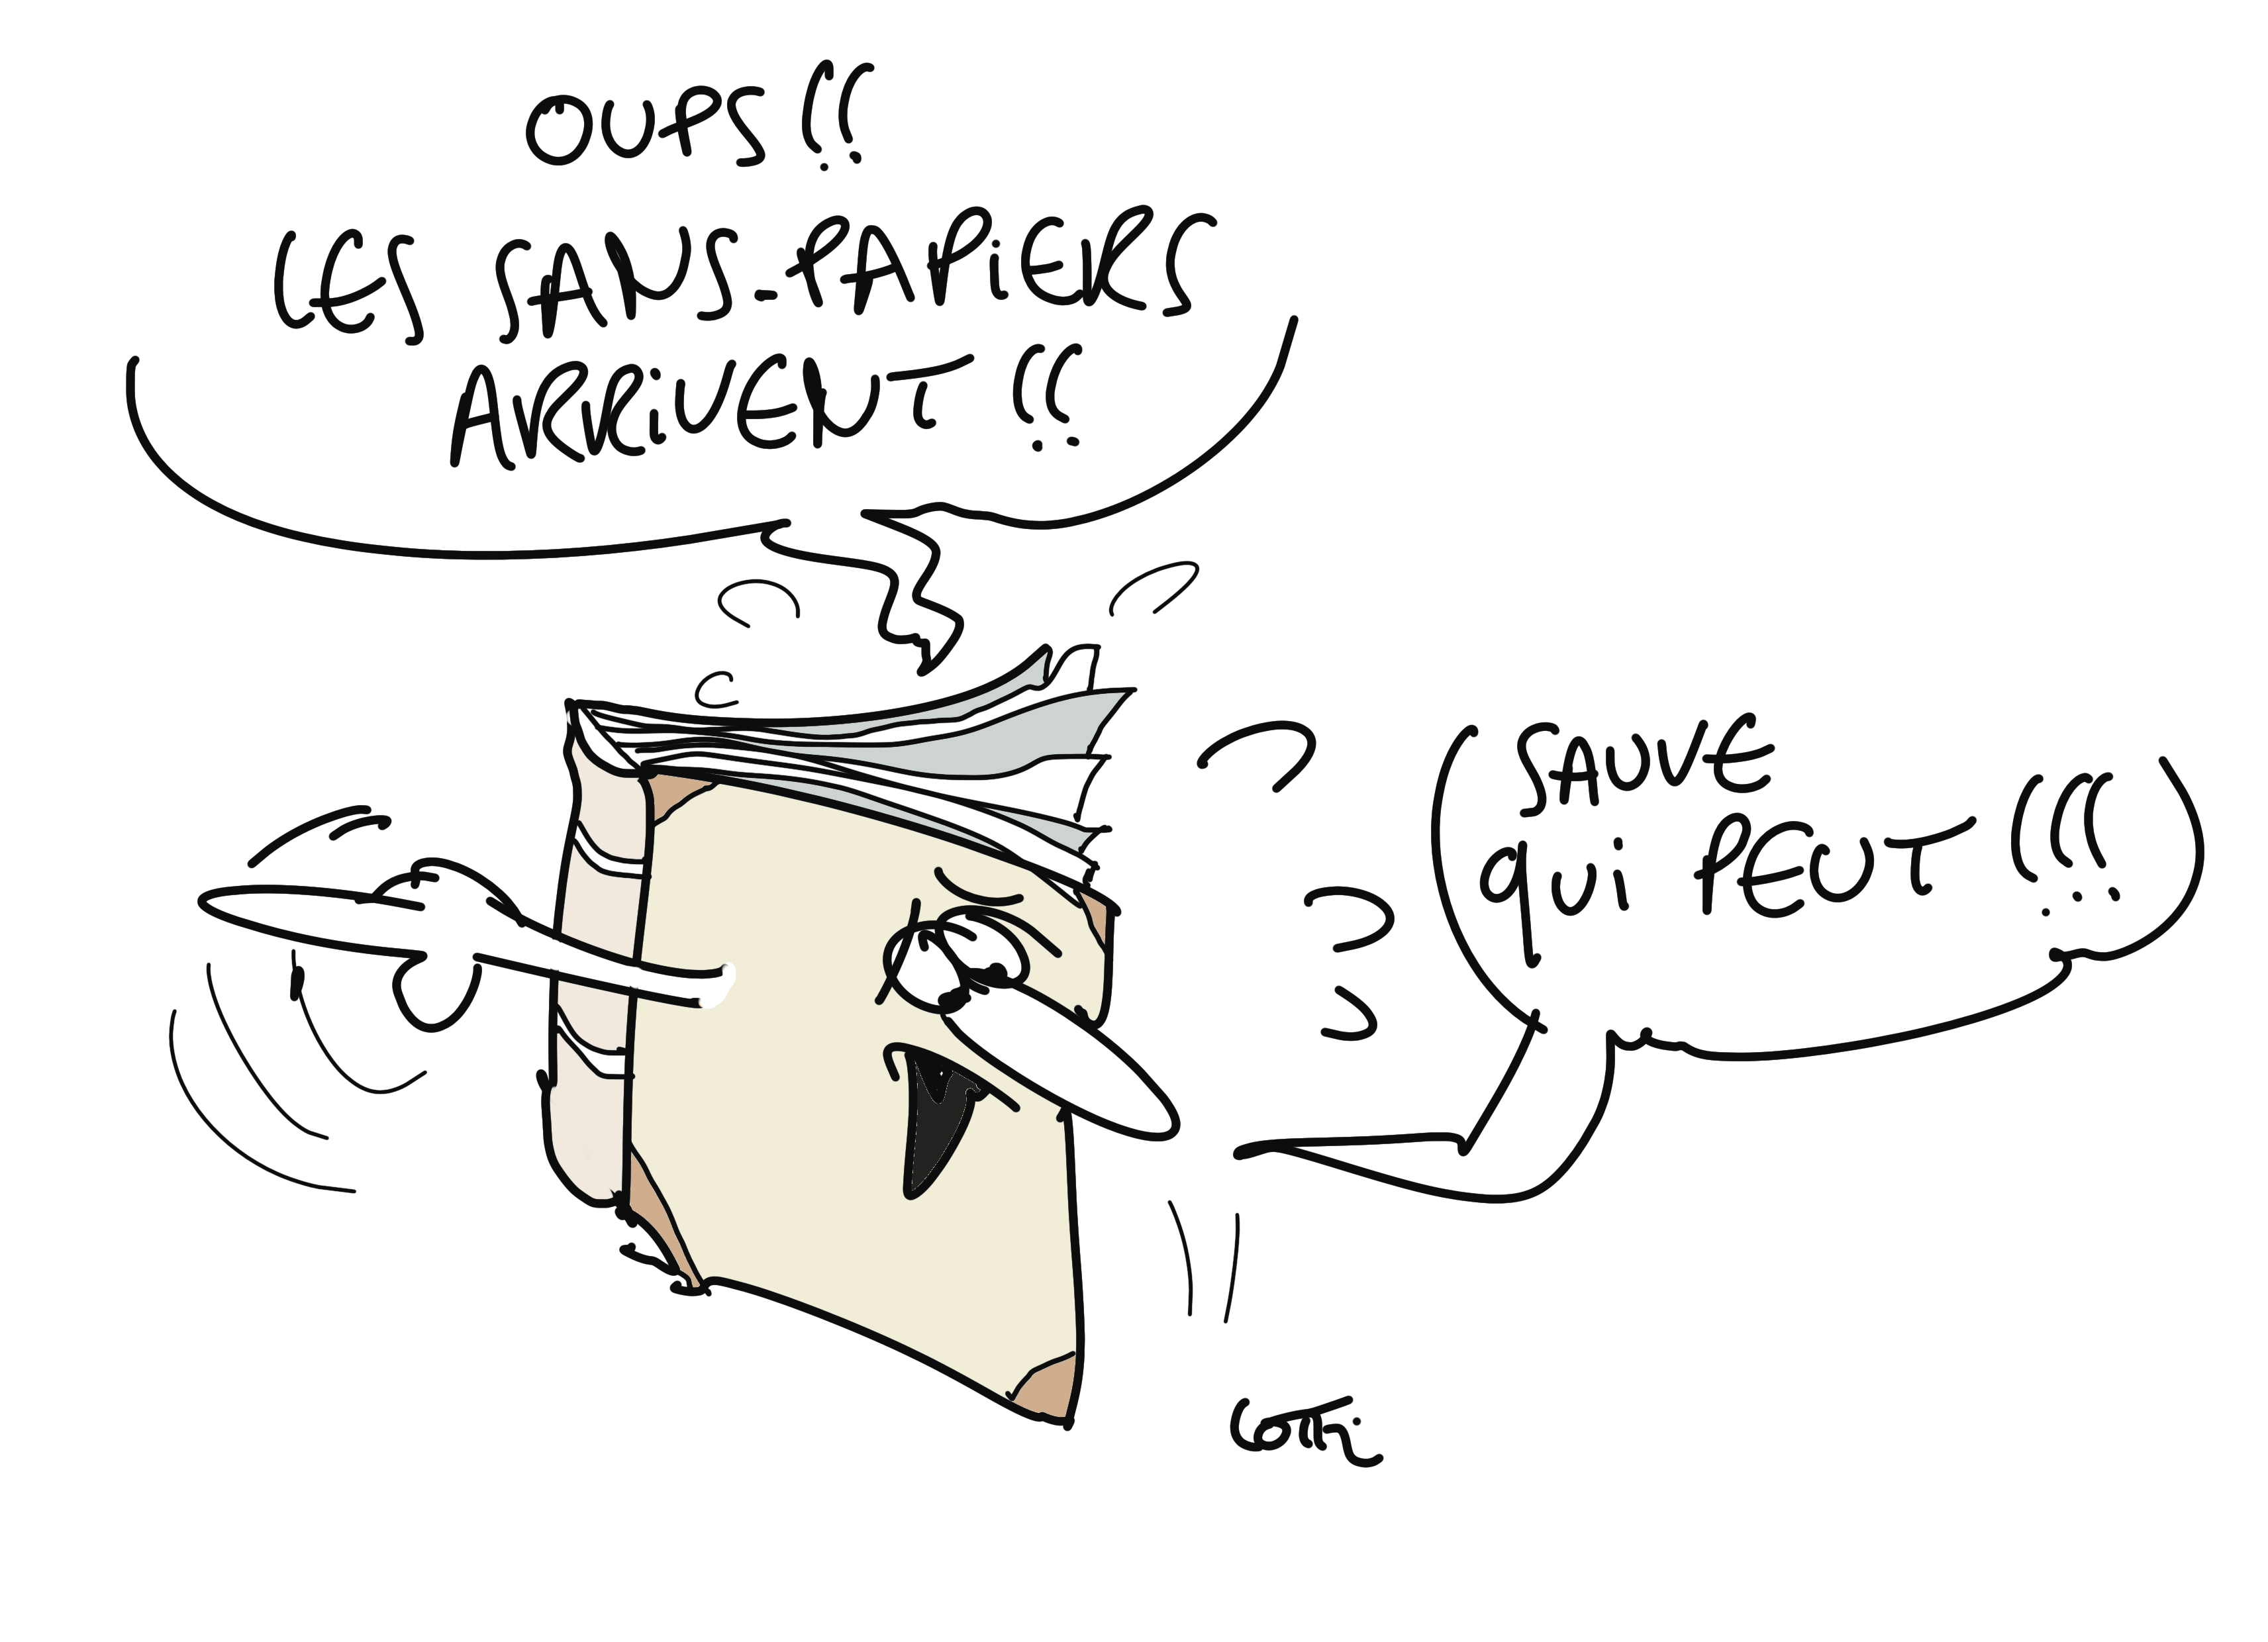 OUPS !!
LES SANS-PAPIERS
ARRIVENT !!
SAUVE
qui PEUT !!!